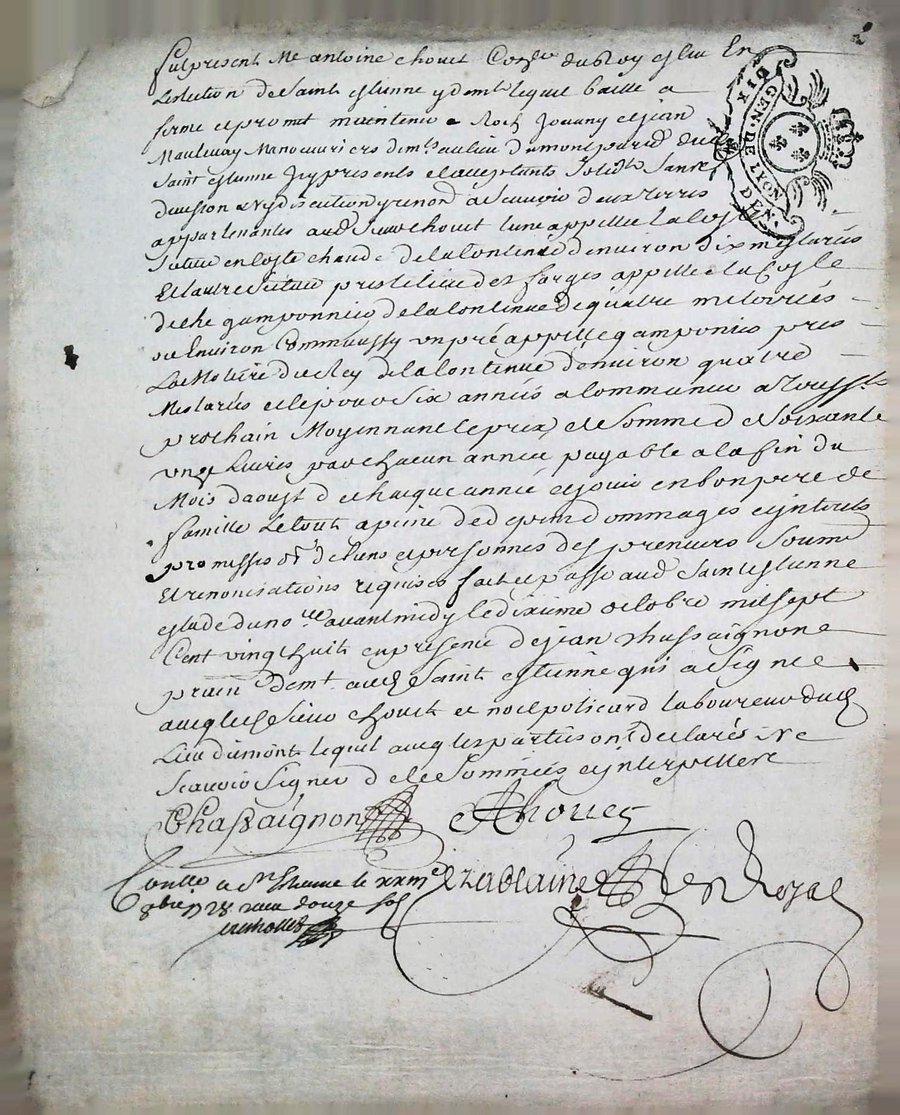 Fut present Me antoine chouet Con.er du Roy eslu En
Leslection de Saint estienne y dem.t lequel baille a
ferme et promet maintenir a Roch Jouany et jean
manouvriers dem.ts au lieu du mont parr.e dud
Saint estienne jcy presents et acceptants solid.t sans
division a Scavoir deux terres
appartenantes aud Sieur chouet lune appellée La Coste
Situee en Coste chaude de la Contenüe denviron dix mestarées
Et lautre Située pres le lieu des forges appellée la Coste
de che gamponnier de la Contenue de quatre
ou Environ Comm'aussy un pré appellé gamponier pres
La du Rey de la Contenue denviron quatre
Mestarées et le pour Six années a Commancer a Touss.ts
prochain Moyennant le prix et Somme de Soixante
vingt Livres par chacun année payable a la fin du
Mois daoust de chacque année et jouir en bon pere de
famille Le tout a peine de dommages et jnterets
promesses et personnes des preneurs Soumi
Et renonciations requises fait et passé aud Saint estienne
estude du no.re avant midy le dixieme octobre mil sept
Cent vingt huit en presence de jean chassaignone
dem.t aud Saint estienne qui a Signé
avec led Sieur chouet et noel policard laboureur dud
Lieu du mont lequel avec les parties ont declarés ne
Scavoir Signer de ce Sommées et jnterpellées
Chassaignon AChouet
Conllé a St Estienne le xxiii
8bre 1728 receu douze sols
DIX
GEN. DE LYON
DEN.